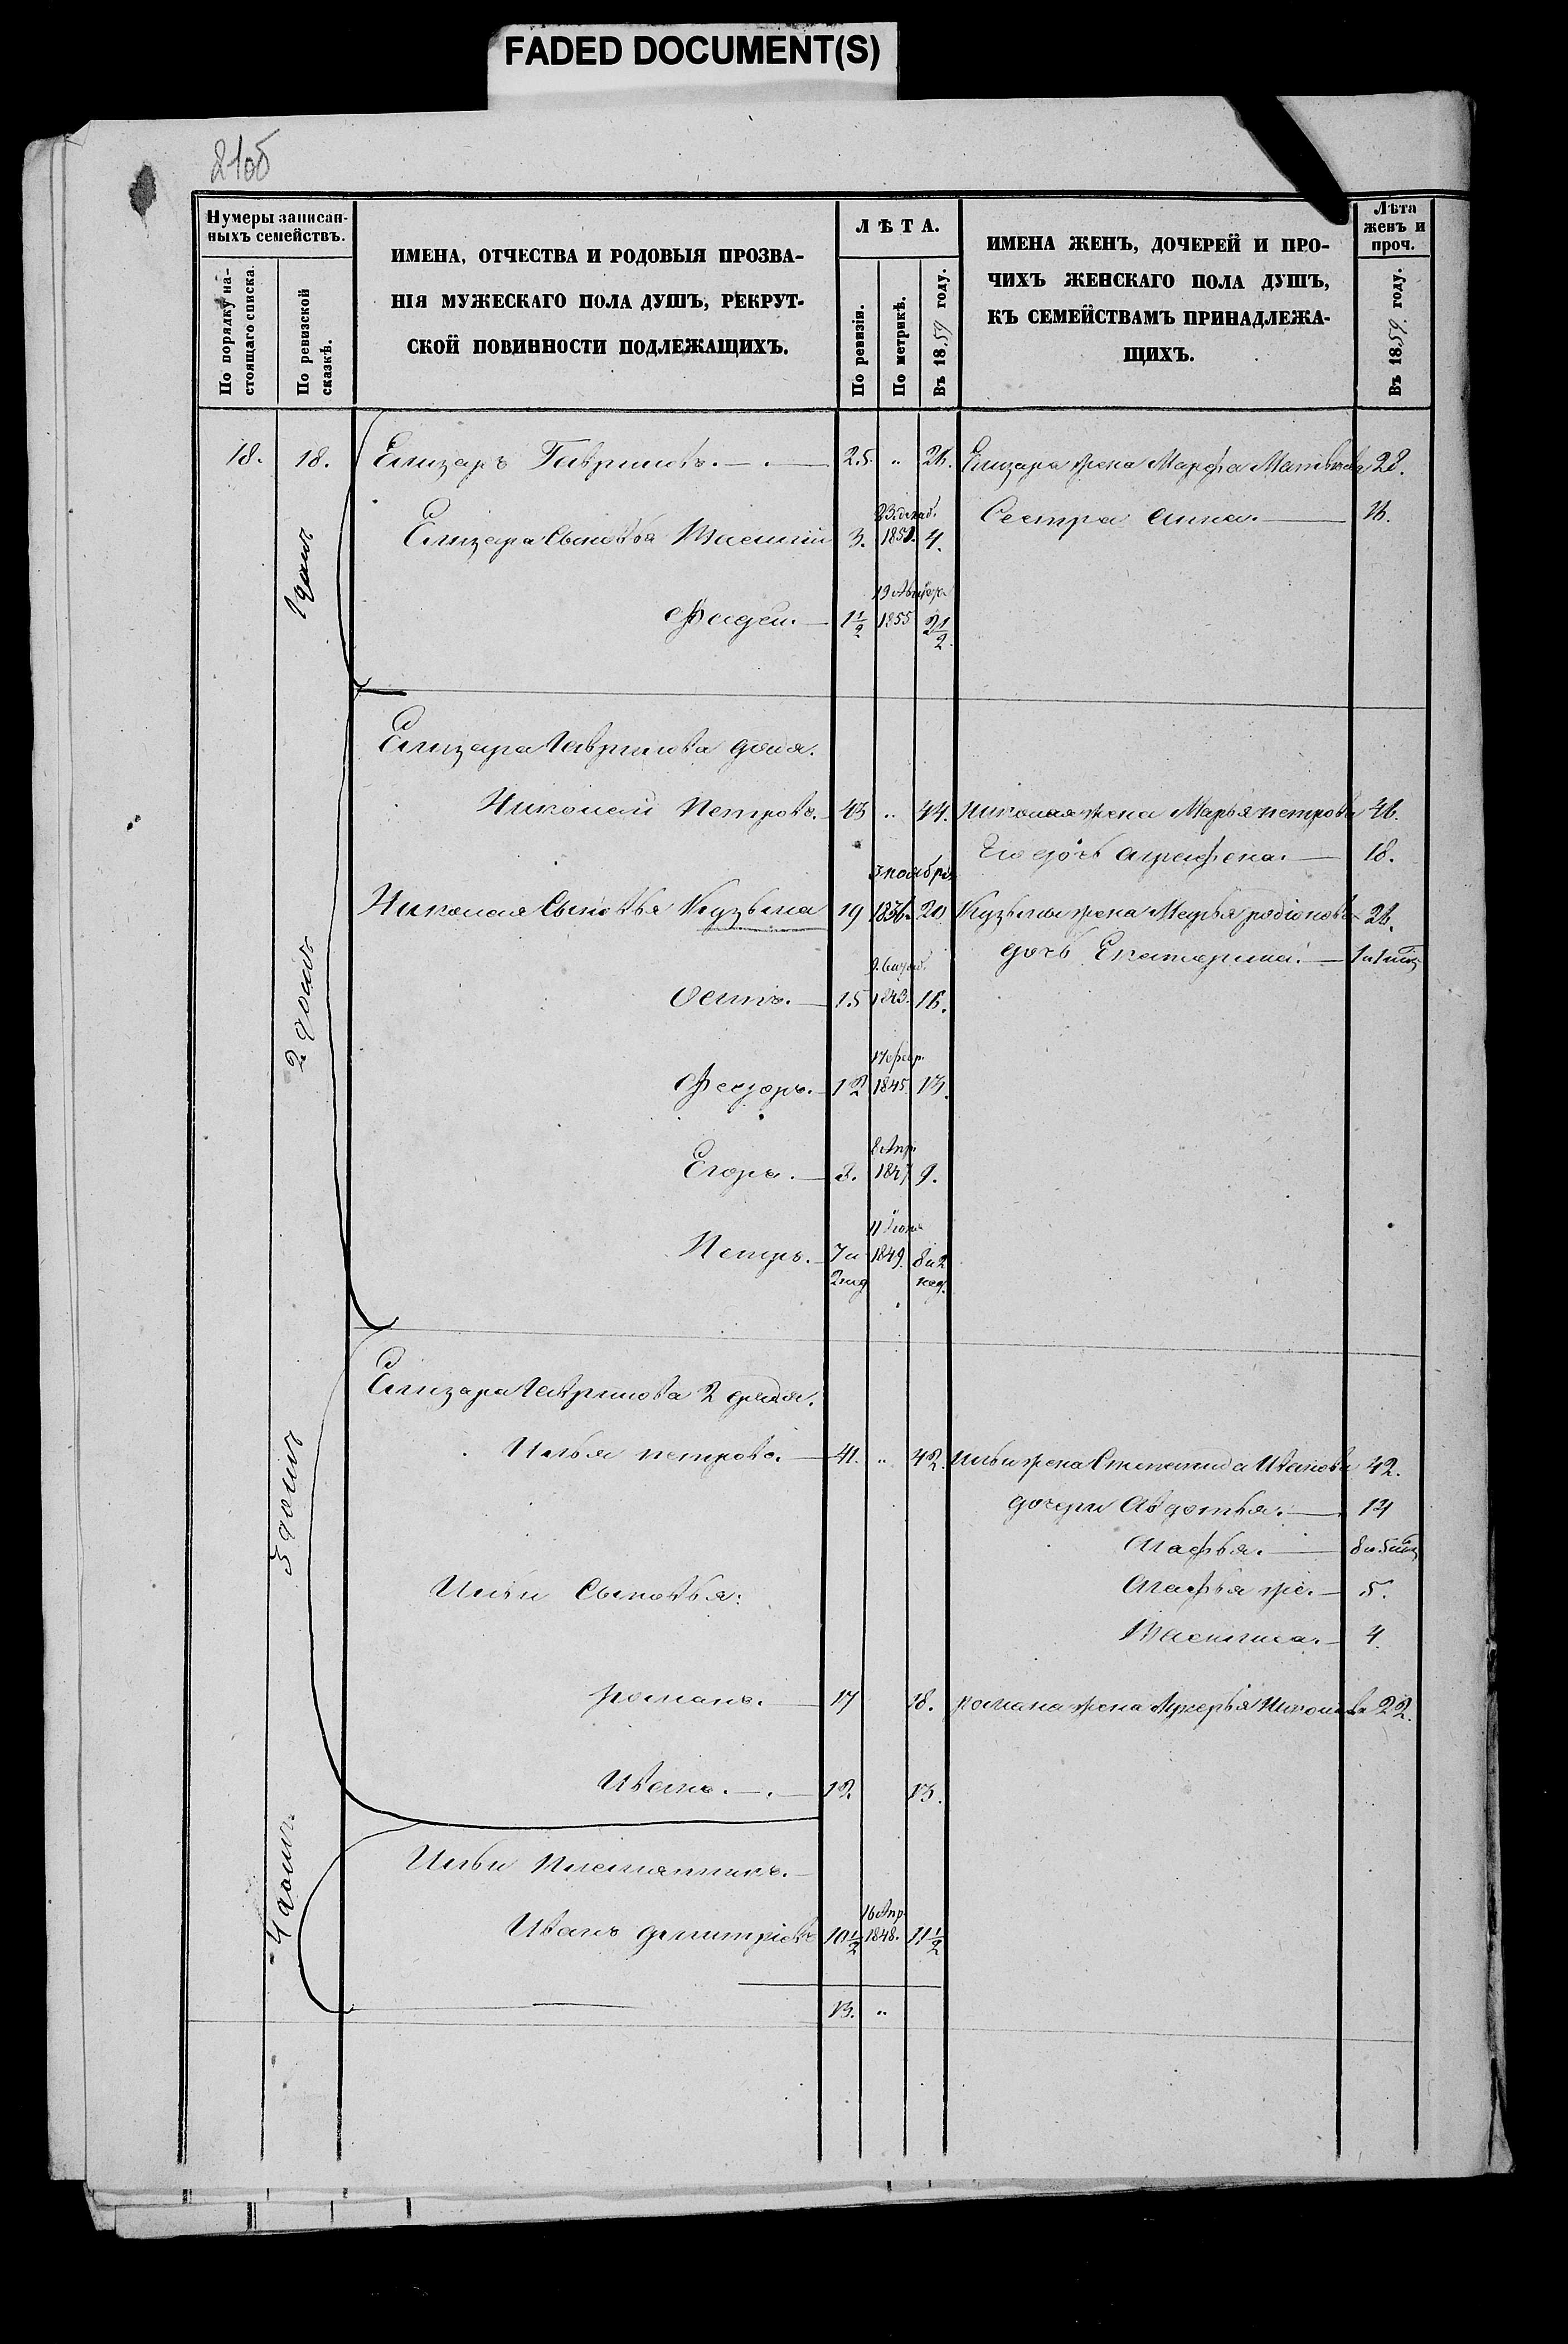 FADED DOCUMENT(S)
210б
Нумеры записан-
ныхъ семействъ.
По порядку на-
стоящаго списка.
По ревизской
сказкѣ.
ИМЕНА, ОТЧЕСТВА И РОДОВЫЯ ПРОЗВА-
НІЯ МУЖЕСКАГО ПОЛА ДУШЪ, РЕКРУТ-
СКОЙ ПОВИННОСТИ ПОДЛЕЖАЩИХЪ.
ЛѢТА.
По ревизіи.
По метрикѣ.
Въ 1859 году.
ИМЕНА ЖЕНЪ, ДОЧЕРЕЙ И ПРО-
ЧИХЪ ЖЕНСКАГО ПОЛА ДУШЪ,
КЪ СЕМЕЙСТВАМЪ ПРИНАДЛЕЖА-
ЩИХЪ.
Лѣта
женъ и
проч.
Въ 1859 году.
18. 18. Елизаръ Гавриловъ. 25. „ 26. Елизара жена Марфа Матвѣева 28.
1 домъ
23. декаб.
Сестра Анна. 16.
Елизара Сыновья Василий 3. 185 4.
19 Августа
Фадей. 1 1/2 1855 2 1/2
Елизара Гаврилова дядя.
2 домъ
Николай Петровъ. 43 „ 44. Николая жена Марья петрова 46.
Его дочь Аграфена. 18.
ноября
Николая Сыновья Кузьма 19 20 Кузьмы жена Марья родіонова 26.
дочь Екатерина. 1 и 1 мѣц
Осипъ. 15 1843. 16.
17 февр.
Федоръ. 12 1845 13.
8 Апр.
Егоръ. 8. 1847 9.
11 Іюня
Петръ. 7 и 1849. 8 и 2
2 нед нед.
Елизара Гаврилова 2 дядя.
3 домъ
Илья петровъ. 41. „ 42. Ильи жена Степанида Иванова 42.
дочери Авдотья. 14
Агафья. 8 и 5 мѣц
Ильи Сыновья: Агафья же. 5.
Василиса. 4.
романъ. 17 18. романа жена Лукерья Николаева 22.
Иванъ. 12. 13.
4 домъ
Ильи Племянникъ.
16 Апр.
Иванъ дмитріевъ 10 1/2 1848. 11 1/2
13. „